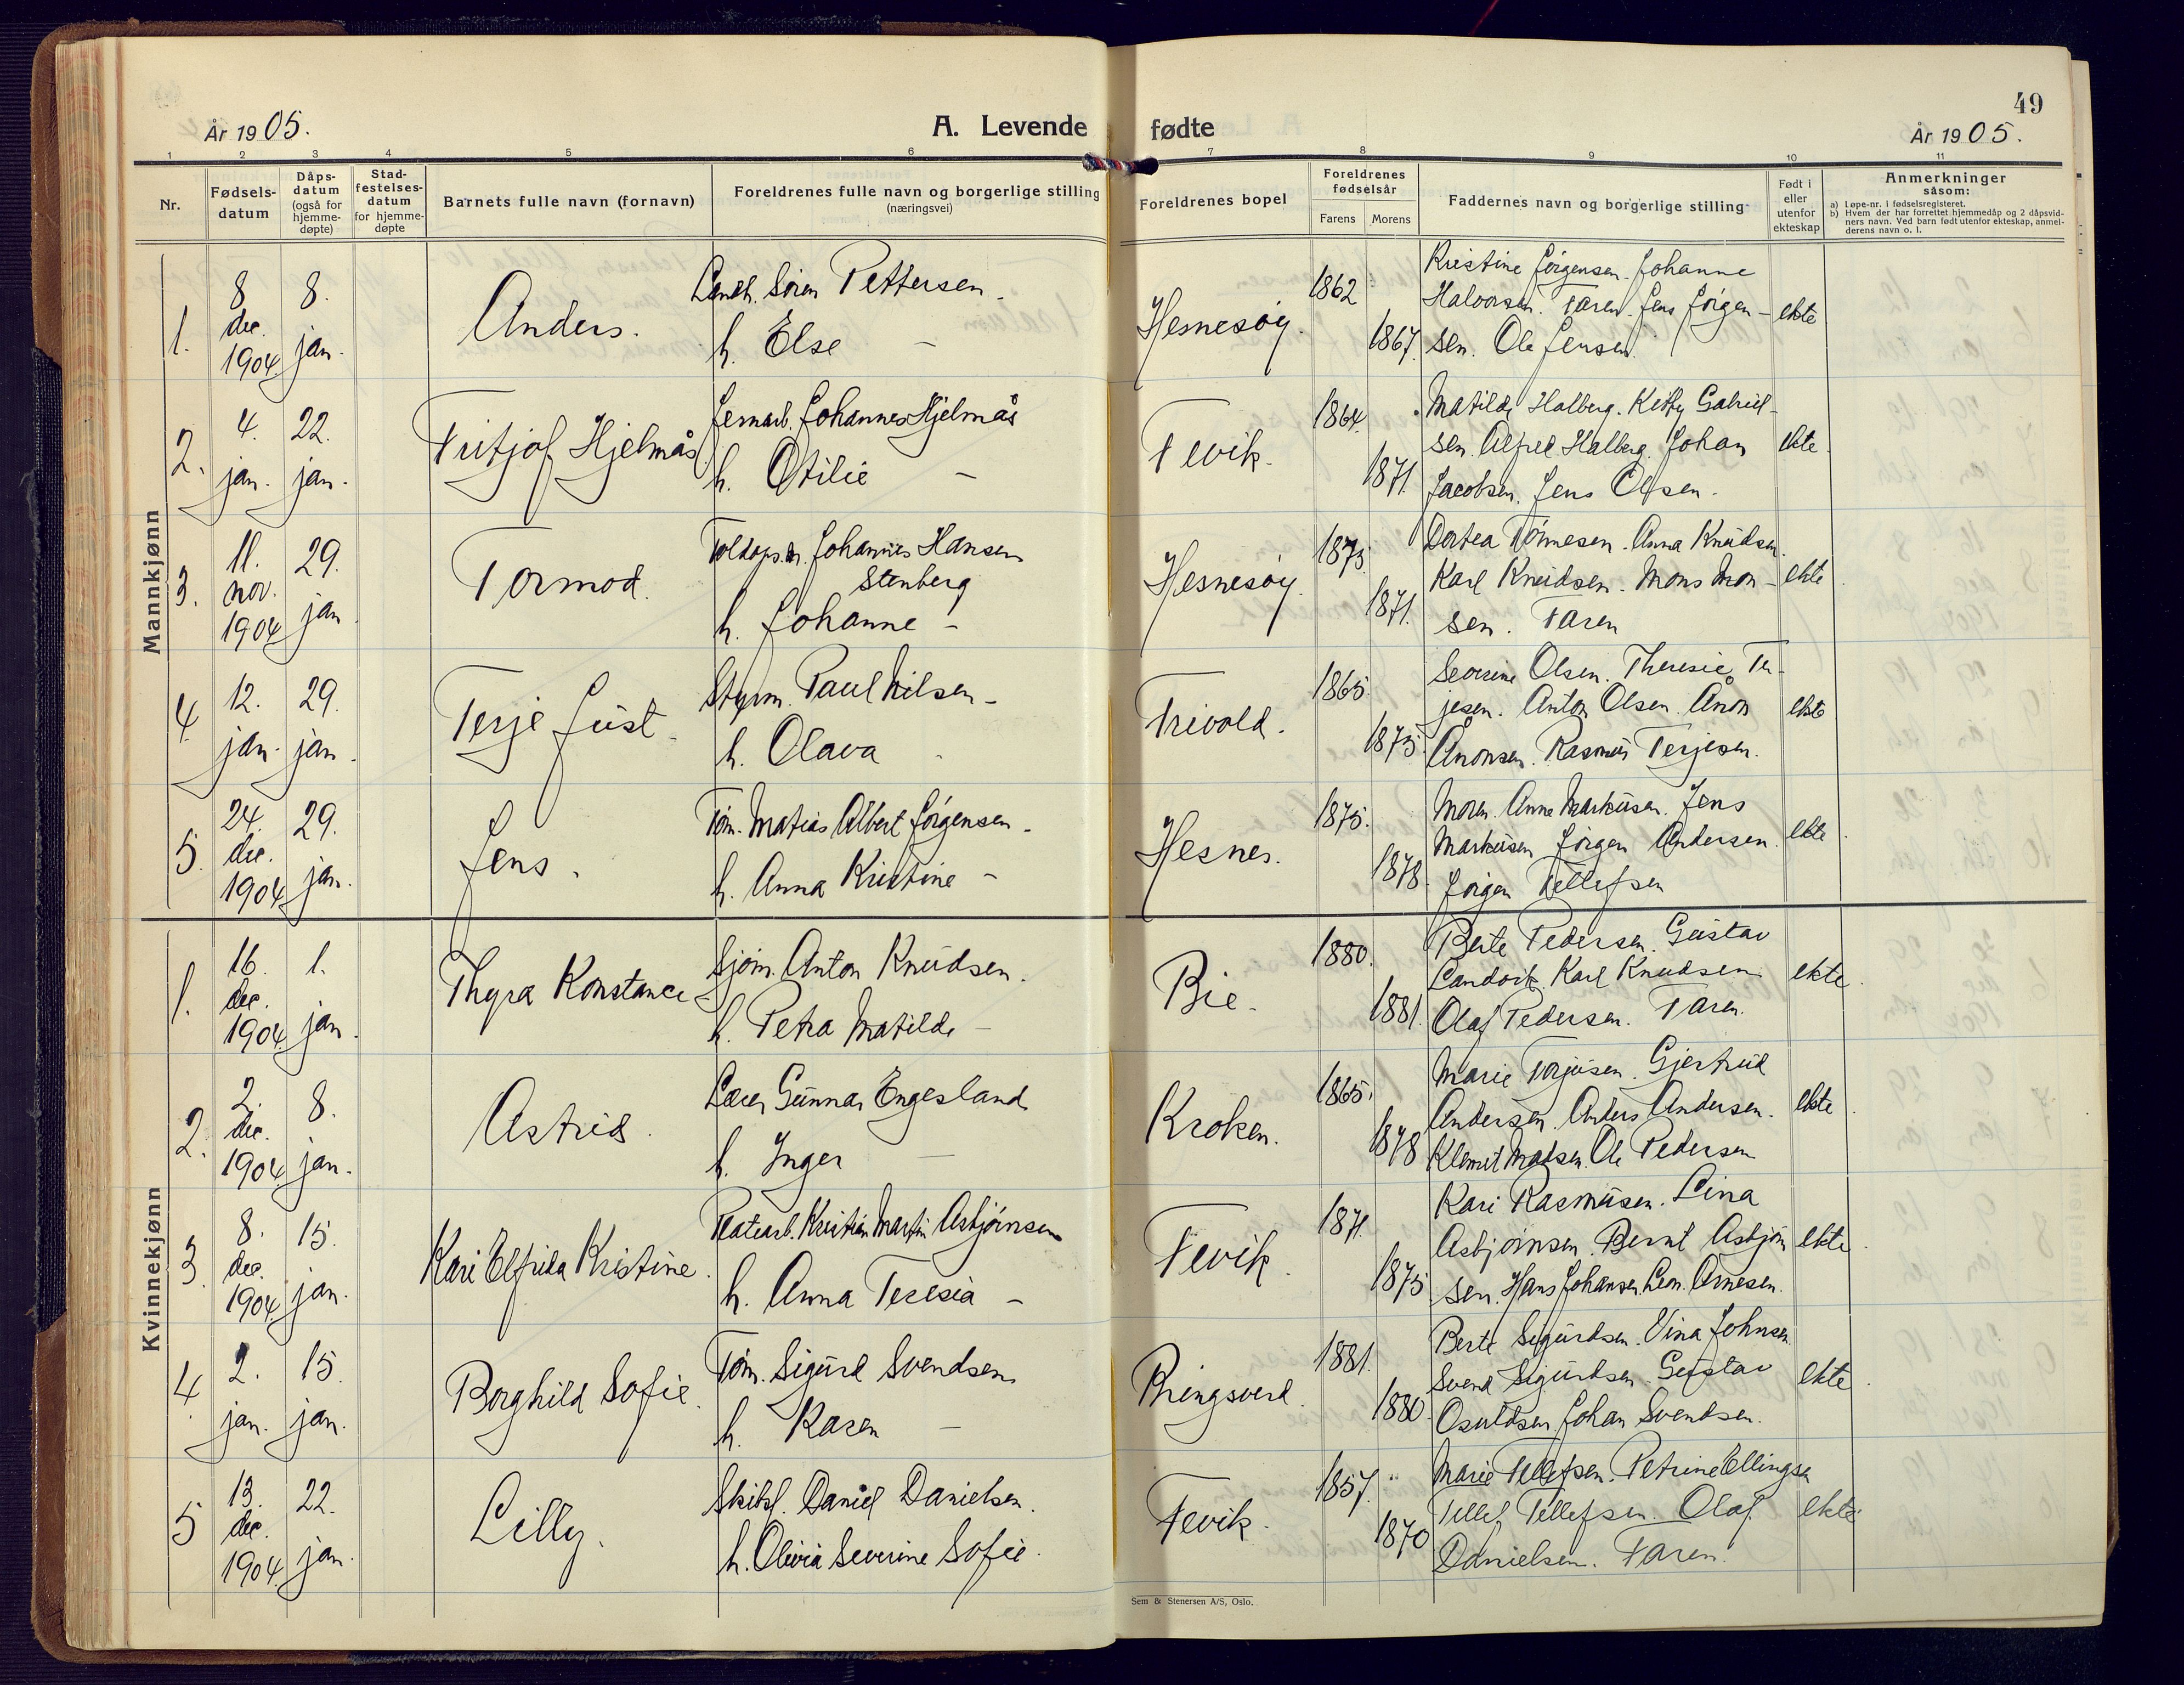 49
År 1905.
A. Levende fødte
År 1905.
1 2 3 4 5 6 7 8 9 10 11
Nr.
Fødsels-
datum
Dåps-
datum
(også for
hjemme-
døpte)
Stad-
festelses-
datum
for hjemme-
døpte
Barnets fulle navn (fornavn)
Foreldrenes fulle navn og borgerlige stilling
(næringsvei)
Foreldrenes bopel
Foreldrenes
fødselsår
Farens Morens
Faddernes navn og borgerlige stilling
Født i
eller
utenfor
ekteskap
Anmerkninger
såsom:
a) Løpe-nr. i fødselsregisteret.
b) Hvem der har forrettet hjemmedåp og 2 dåpsvid-
ners navn. Ved barn født utenfor ekteskap, anmel-
derens navn o. l.
Mannkjønn
1.
8.
dec.
1904.
8.
jan.
Anders.
Søren Pettersen -
h. Else -
Hesnesøy.
1862
1867.
Kristine Jørgensen. Johanne
Halvorsen. Faren. Jens Jørgen-
sen. Ole Jensen.
ekte
2.
4.
jan.
22.
jan.
Fritjof Hjelmås
Jernarb. Johannes Hjelmås
h. Otilie -
Fevik.
1864.
1871.
Matilde Halberg. Ketty Gabriel-
sen. Alfred Halberg. Johan
Jacobsen. Jens Olsen.
ekte.
3.
11.
nov.
1904
29.
jan.
Tormod.
Toldops.m. Johannes Hansen
Stenberg
h. Johanne -
Hesnesøy.
1873.
1871.
Dortea Tønnesen. Anna Knudsen.
Karl Knudsen. Mons Mon-
sen. Faren
ekte
4.
12.
jan.
29.
jan.
Terje Just.
Styrm. Paul Nilsen -
h. Olava -
Trivold.
1865.
1875.
Severine Olsen. Theresie Ter-
jesen. Anton Olsen. Anon
Anonsen. Rasmus Terjesen.
ekte
5.
24.
dec.
1904
29.
jan.
Jens.
Tøm. Matias Albert Jørgensen -
h. Anna Kristine -
Hesnes.
1875.
1878.
Moren. Anne Markusen. Jens
Markusen Jørgen Andersen.
Jørgen Tellefsen
ekte.
Kvinnekjønn
1.
16.
dec.
1904.
1.
jan.
Thyra Konstance
Sjøm. Anton Knudsen.
h. Petra Matilde -
Bie.
1880.
1881.
Berte Pedersen. Gustav
Landvik. Karl Knudsen.
Olaf Pedersen. Faren.
ekte.
2.
2.
dec.
1904.
8.
jan.
Astrid.
Lærer Gunnar Engesland
h. Inger -
Kroken.
1865.
1878
Marie Torjusen. Gjertrud
Andersen. Anders Andersen.
Klemet Madsen. Ole Pedersen
ekte.
3.
8.
dec.
1904.
15.
jan.
Kari Elfrida Kristine.
Platearb. Kristian Martin Asbjørnsen
h. Anna Teresia -
Fevik.
1871.
1875
Kari Rasmusen. Lina
Asbjørnsen. Bernt Asbjørn
sen. Hans Johansen. Leon. Arnesen.
ekte.
4.
2.
jan.
15.
jan.
Borghild Sofie.
Tøm. Sigurd Svendsen
h. Karen -
Bringsverd.
1881.
1880.
Berte Sigurdsen. Vina Johnsen.
Svend Sigurdsen. Gustav
Osuldsen. Johan Svendsen.
ekte.
5
13.
dec.
1904.
22.
jan.
Lilly.
Daniel Danielsen.
h. Olivia Severine Sofie.
Fevik.
1857.
1870
Marie Tellefsen. Petrine Ellingsen
Tellef Tellefsen. Olaf
Danielsen. Faren.
ekte.
Sem & Stenersen A/S, Oslo.